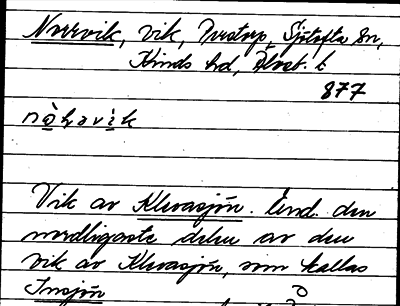 Norrvik, vik, Perstorp, Sjötofta sn,
Kinds hd, Älvsb. l
877
Vik av Klevasjön. End. den
nordligaste delen av den
vik av Klevasjön, som kallas
Insjön